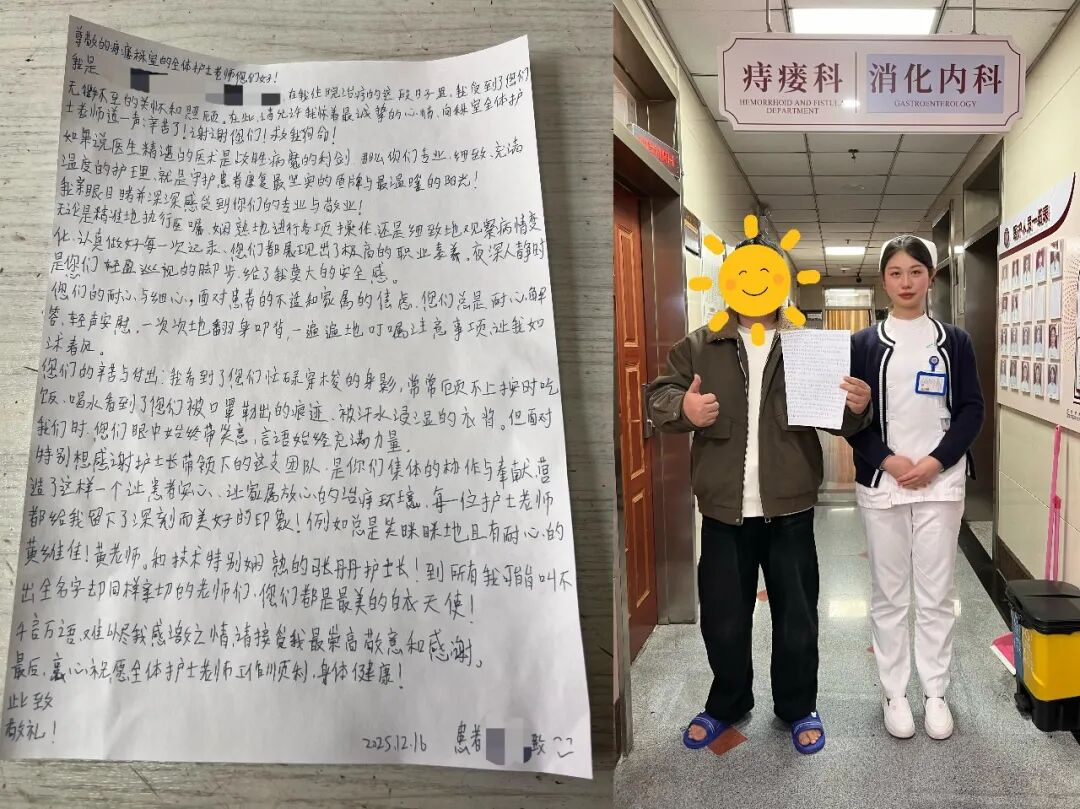 尊敬的痔瘘科室的全体护士老师您们好!
我是
在我住院治疗的这段日子里,我受到了您们
无微不至的关怀和照顾。在此,请允许我怀着最诚挚的心情,向科室全体护
士老师道一声:辛苦了!谢谢您们!救我狗命!
如果说医生精湛的医术是战胜病魔的利剑,那么你们专业、细致、充满
温度的护理,就是守护患者康复最坚实的盾牌与最温暖的阳光!
我亲眼目睹并深深感受到你们的专业与敬业!
无论是精准地执行医嘱,娴熟地进行各项操作还是细致地观察病情变
化,认真做好每一次记录、您们都展现出了极高的职业素养。夜深人静时
是您们轻盈巡视的脚步,给了我莫大的安全感。
您们的耐心与细心:面对患者的不适和家属的焦虑,您们总是耐心解
答、轻声安慰。一次次地翻身叩背,一遍遍地叮嘱注意事项,让我如
沐春风。
您们的辛苦与付出:我看到了您们忙碌穿梭的身影,常常顾不上按时吃
饭、喝水看到了您们被口罩勒出的痕迹、被汗水浸湿的衣背。但面对
我们时,您们眼中始终带笑意,言语始终充满力量。
特别想感谢护士长带领下的这支团队,是你们集体的协作与奉献,营
造了这样一个让患者安心、让家属放心的治疗环境。每一位护士老师
都给我留下了深刻而美好的印象!例如总是笑眯眯地且有耐心的
黄维佳!黄老师。和技术特别娴熟的张丹丹护士长!到所有我可能叫不
出全名字却同样亲切的老师们,您们都是最美的白衣天使!
千言万语,难以尽我感激之情,请接受我最崇高敬意和感谢。
最后,衷心祝愿全体护士老师工作顺利,身体健康!
此致
敬礼!
2025.12.16 患者 致
痔瘘科
HEMORRHOID AND FISTULA
DEPARTMENT
消化内科
GASTROENTEROLOGY
医护人员一览表